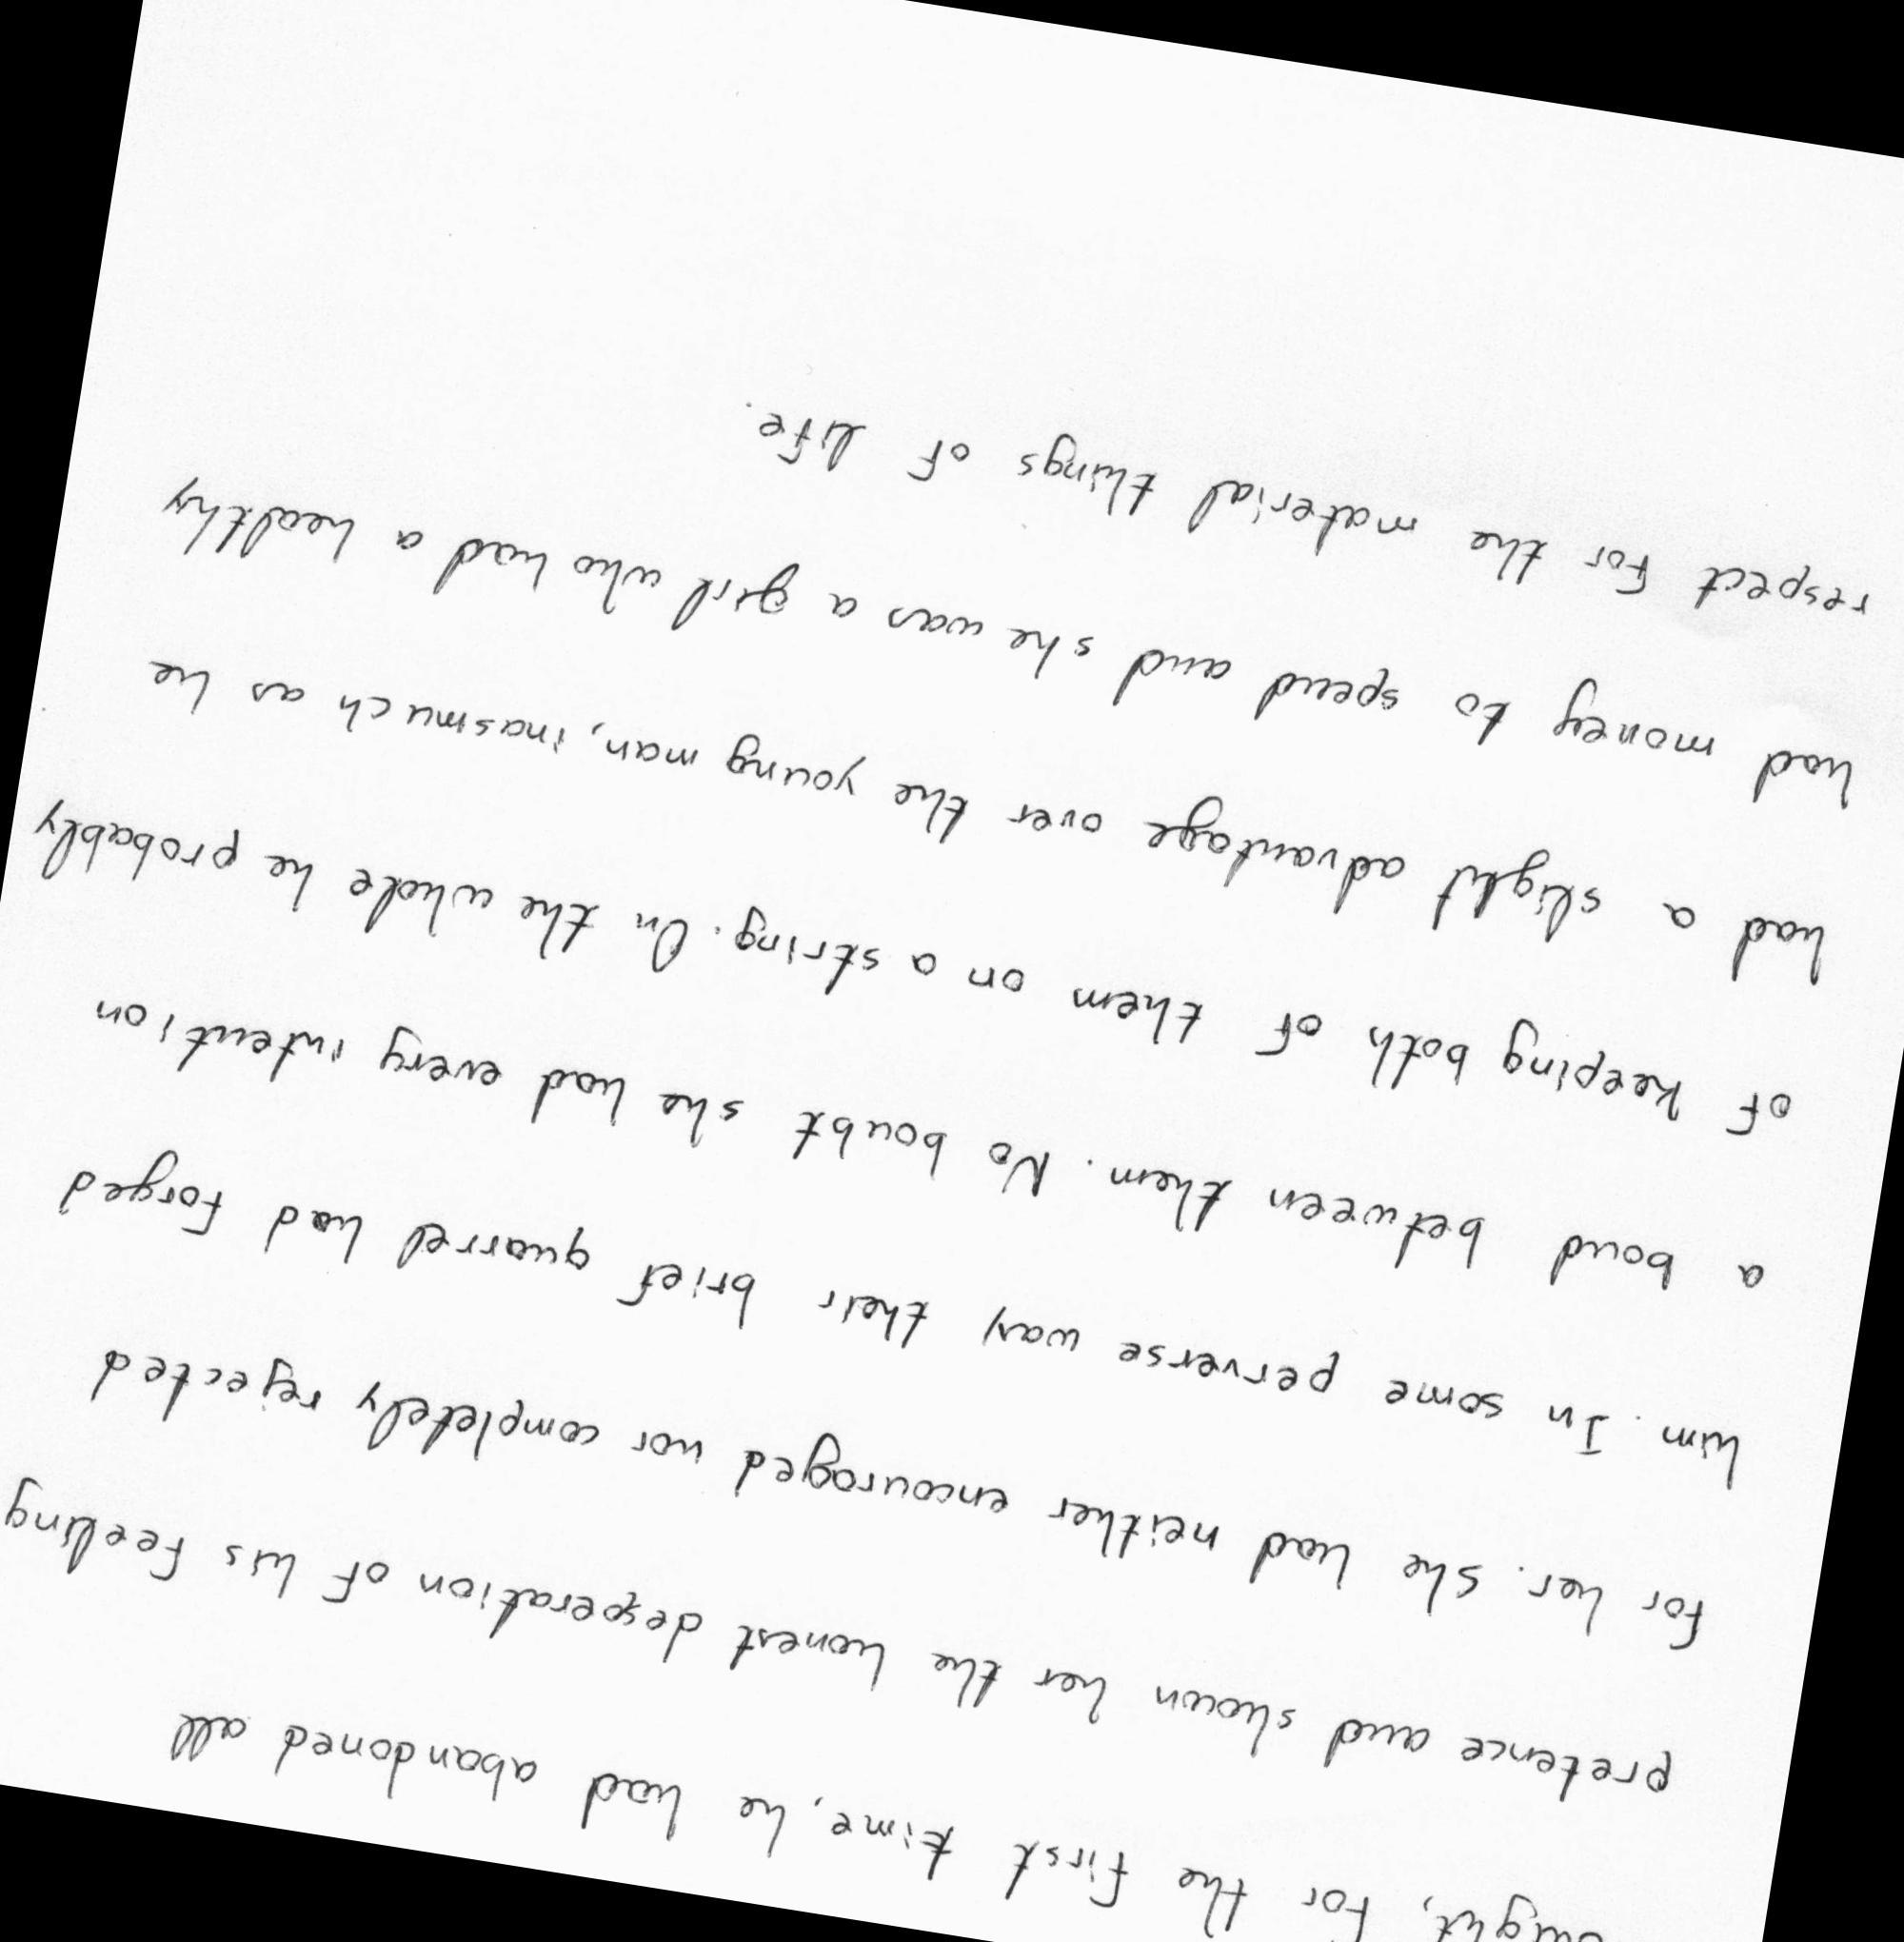 for the first time, he had abandoned all
pretence and shown her the honest desperation of his feeling
for her. She had neither encouraged nor completely rejected
him. In some perverse way their brief quarrel had forged
a bond between them. No boubt she had every intention
of keeping both of them on a string. On the whole he probably
had a slight advantage over the young man, inasmuch as he
had money to spend and she was a girl who had a healthy
respect for the material things of life.